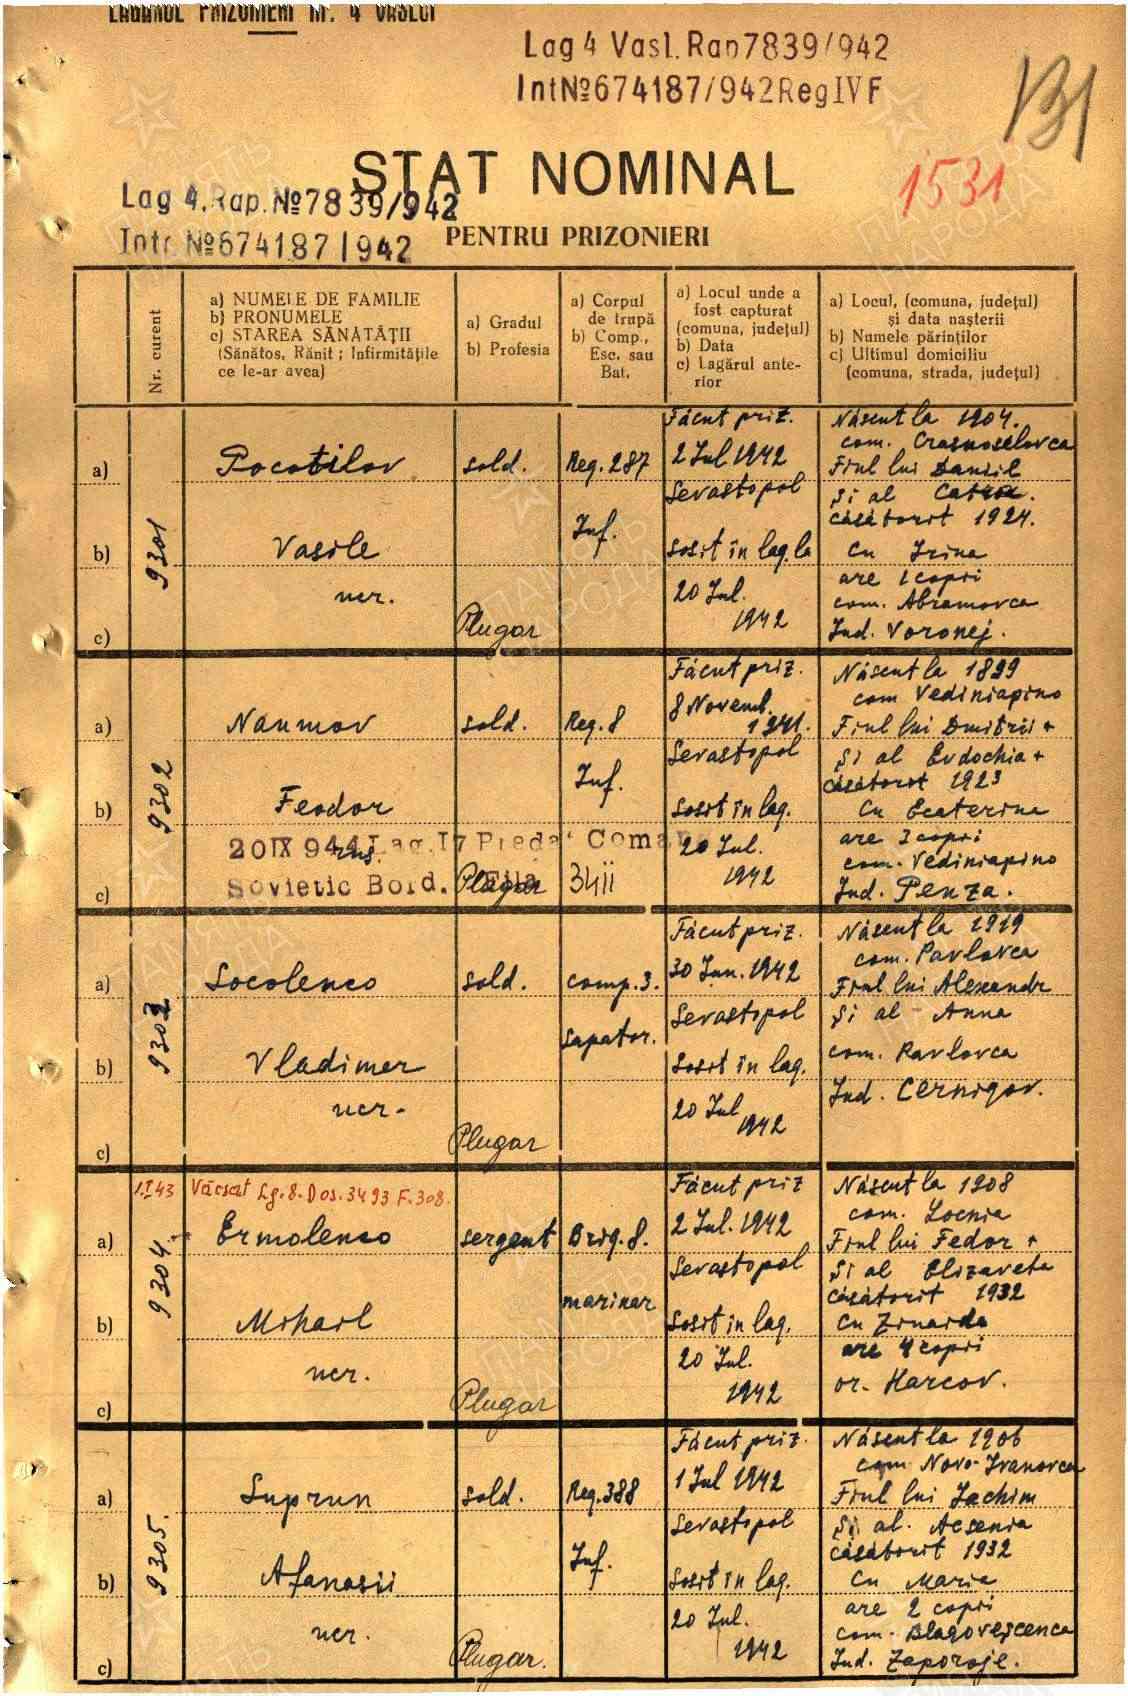 LAGARUL PRIZONIERI Nr. 4 VASLUI
Lag 4 Vasl. Rap 7839/942
Int№674187/942RegIVF
131
1531
STAT NOMINAL
Lag 4. Rap. №7839/942
PENTRU PRIZONIERI
Intr. №674187/942
Nr. curent
a) NUMELE DE FAMILIE
b) PRONUMELE
c) STAREA SĂNĂTĂȚII
(Sănătos, Rănit ; Infirmitățile
ce le-ar avea)
a) Gradul
b) Profesia
a) Corpul
de trupă
b) Comp.,
Esc. sau
Bat.
a) Locul unde a
fost capturat
(comuna, județul)
b) Data
c) Lagărul ante-
rior
a) Locul, (comuna, județul)
și data nașterii
b) Numele părinților
c) Ultimul domiciliu
(comuna, strada, județul)
a)
b)
c)
9301
Pocotilov
Vasile
ucr.
sold.
Plugar
Reg. 287
Inf.
Făcut priz.
2 Iul 1942
Sevastopol
Sosit în lag. la
20 Iul.
1942
Născut la 1904.
com. Crasnoselovca
Fiul lui Daniil
Și al
căsătorit 1924.
Cu Irina
are 1 copri
com. Abramovca
Jud. Voronej.
a)
b)
c)
9302
Naumov
Feodor
rus.
20 IX 944 Lag. 17 Predat Coman
Sovietic Bord.
sold.
Plugar
Reg. 8
Inf.
34 II
Făcut priz.
8 Novemb.
1941.
Sevastopol
Sosit în lag.
20 Iul.
1942
Născut la 1899
com Vediniapino
Fiul lui Dmitrii +
Și al Evdochia +
căsătorit 1923
Cu Ecaterina
are 3 copri
com. Vediniapino
Jud. Penza.
a)
b)
c)
9303
Socolenco
Vladimer
ucr.
sold.
Plugar
comp. 3.
sapator.
Făcut priz.
30 Iun. 1942
Sevastopol
Sosit în lag.
20 Iul
1942
Născut la 1919
com. Pavlovca
Fiul lui Alexandr
Și al - Anna
com. Pavlovca
Jud. Cernigov.
1.I 43 Văcsat Lg. 8. Dos. 3493 F. 308.
a)
b)
c)
9304.
Ermolenco
Mihail
ucr.
sergent
Plugar
Brig. 8.
marinar
Făcut priz
2 Iul. 1942
Sevastopol
Sosit în lag.
20 Iul.
1942
Născut la 1908
com. Locnia
Fiul lui Fedor +
Și al Elizaveta
căsătorit 1932
Cu Zinaida
are 4 copri
or. Harcov.
a)
b)
c)
9305.
Suprun
Afanasii
ucr.
sold.
Plugar.
Reg. 388
Inf.
Făcut priz.
1 Iul 1942
Sevastopol
Sosit în lag.
20 Iul.
1942
Născut la 1906
com Novo-Ivanovca
Fiul lui Iachim
Și al. Acsenia
căsătorit 1932
Cu Maria
are 2 copri
com. Blagoveșcenca
Jud. Zaporoje.
ПАМЯТЬ НАРОДА